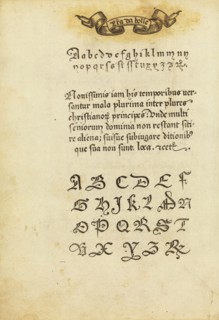 Aabcdvefghiklmnny
nopqrsostſſtuxyzꝛꝝ.
Nouissimis iam his temporibus ver-
santur mala plurima inter plures
christianos principes. Unde multi
seniorum dominia non restant siti-
re aliena; suisue subiugare ditionibꝰ
que sua non sunt.
A B C D E F
G H I K L M N
O P Q R S T
V X Y Z R